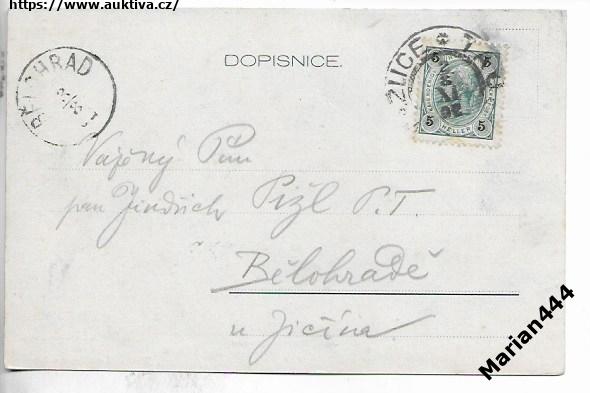 https://www.auktiva.cz/
DOPISNICE.
5 HELLER 5
Vážený Pán
pan Jindřich Pižl P.T.
Bělohradě
u Jičína
Marian444